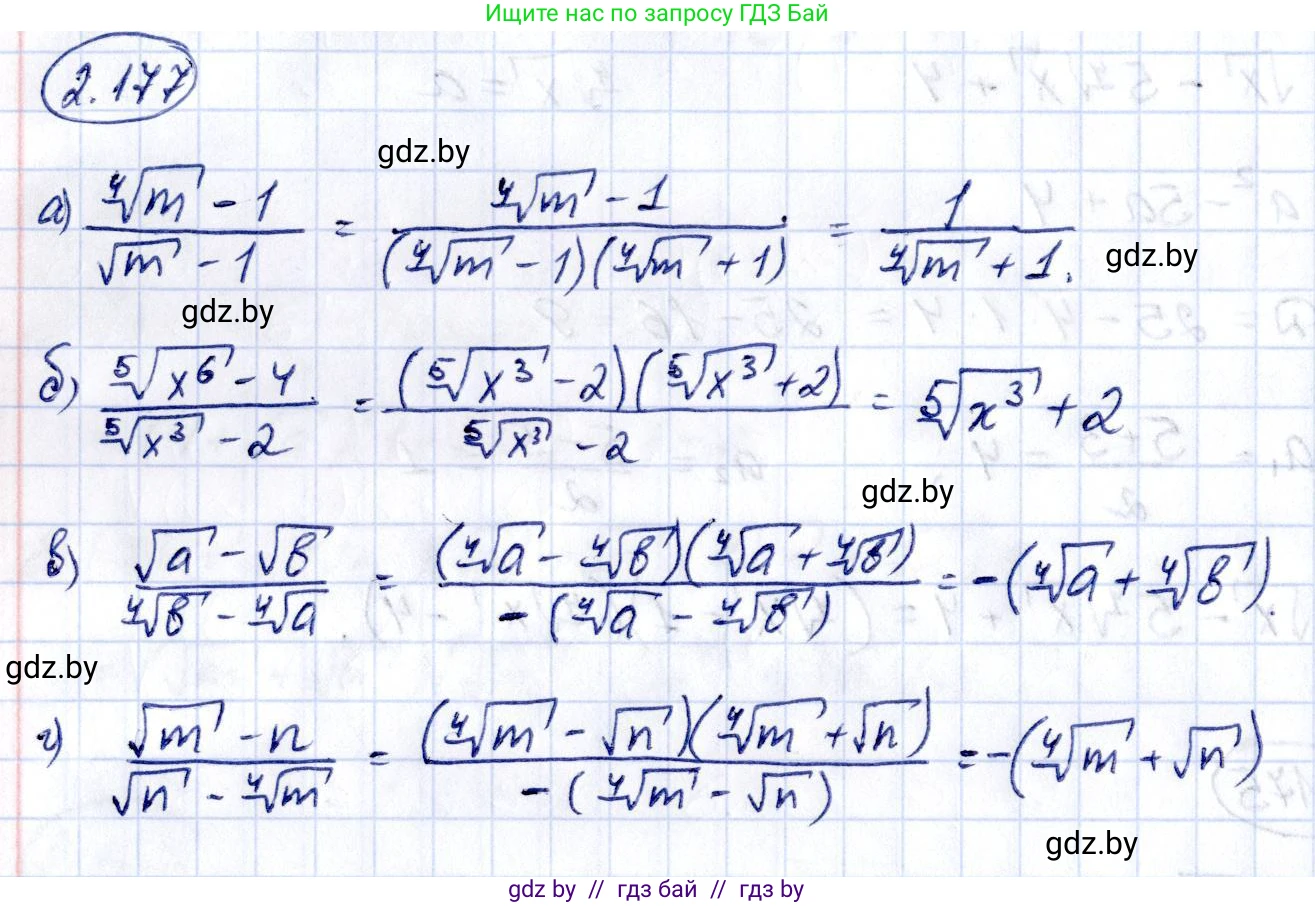 Ищите нас по запросу ГДЗ Бай
2.177
gdz.by
а) (⁴√m - 1)/(√m - 1) = (⁴√m - 1)/((⁴√m - 1)(⁴√m + 1)) = 1/(⁴√m + 1).
gdz.by
gdz.by
б) (⁵√x⁶ - 4)/(⁵√x³ - 2) = ((⁵√x³ - 2)(⁵√x³ + 2))/(⁵√x³ - 2) = ⁵√x³ + 2
gdz.by
в) (√a - √b)/(⁴√b - ⁴√a) = ((⁴√a - ⁴√b)(⁴√a + ⁴√b))/(-(⁴√a - ⁴√b)) = -(⁴√a + ⁴√b).
gdz.by
г) (√m - n)/(√n - ⁴√m) = ((⁴√m - √n)(⁴√m + √n))/(-(⁴√m - √n)) = -(⁴√m + √n)
gdz.by
gdz by // гдз бай // gdz by